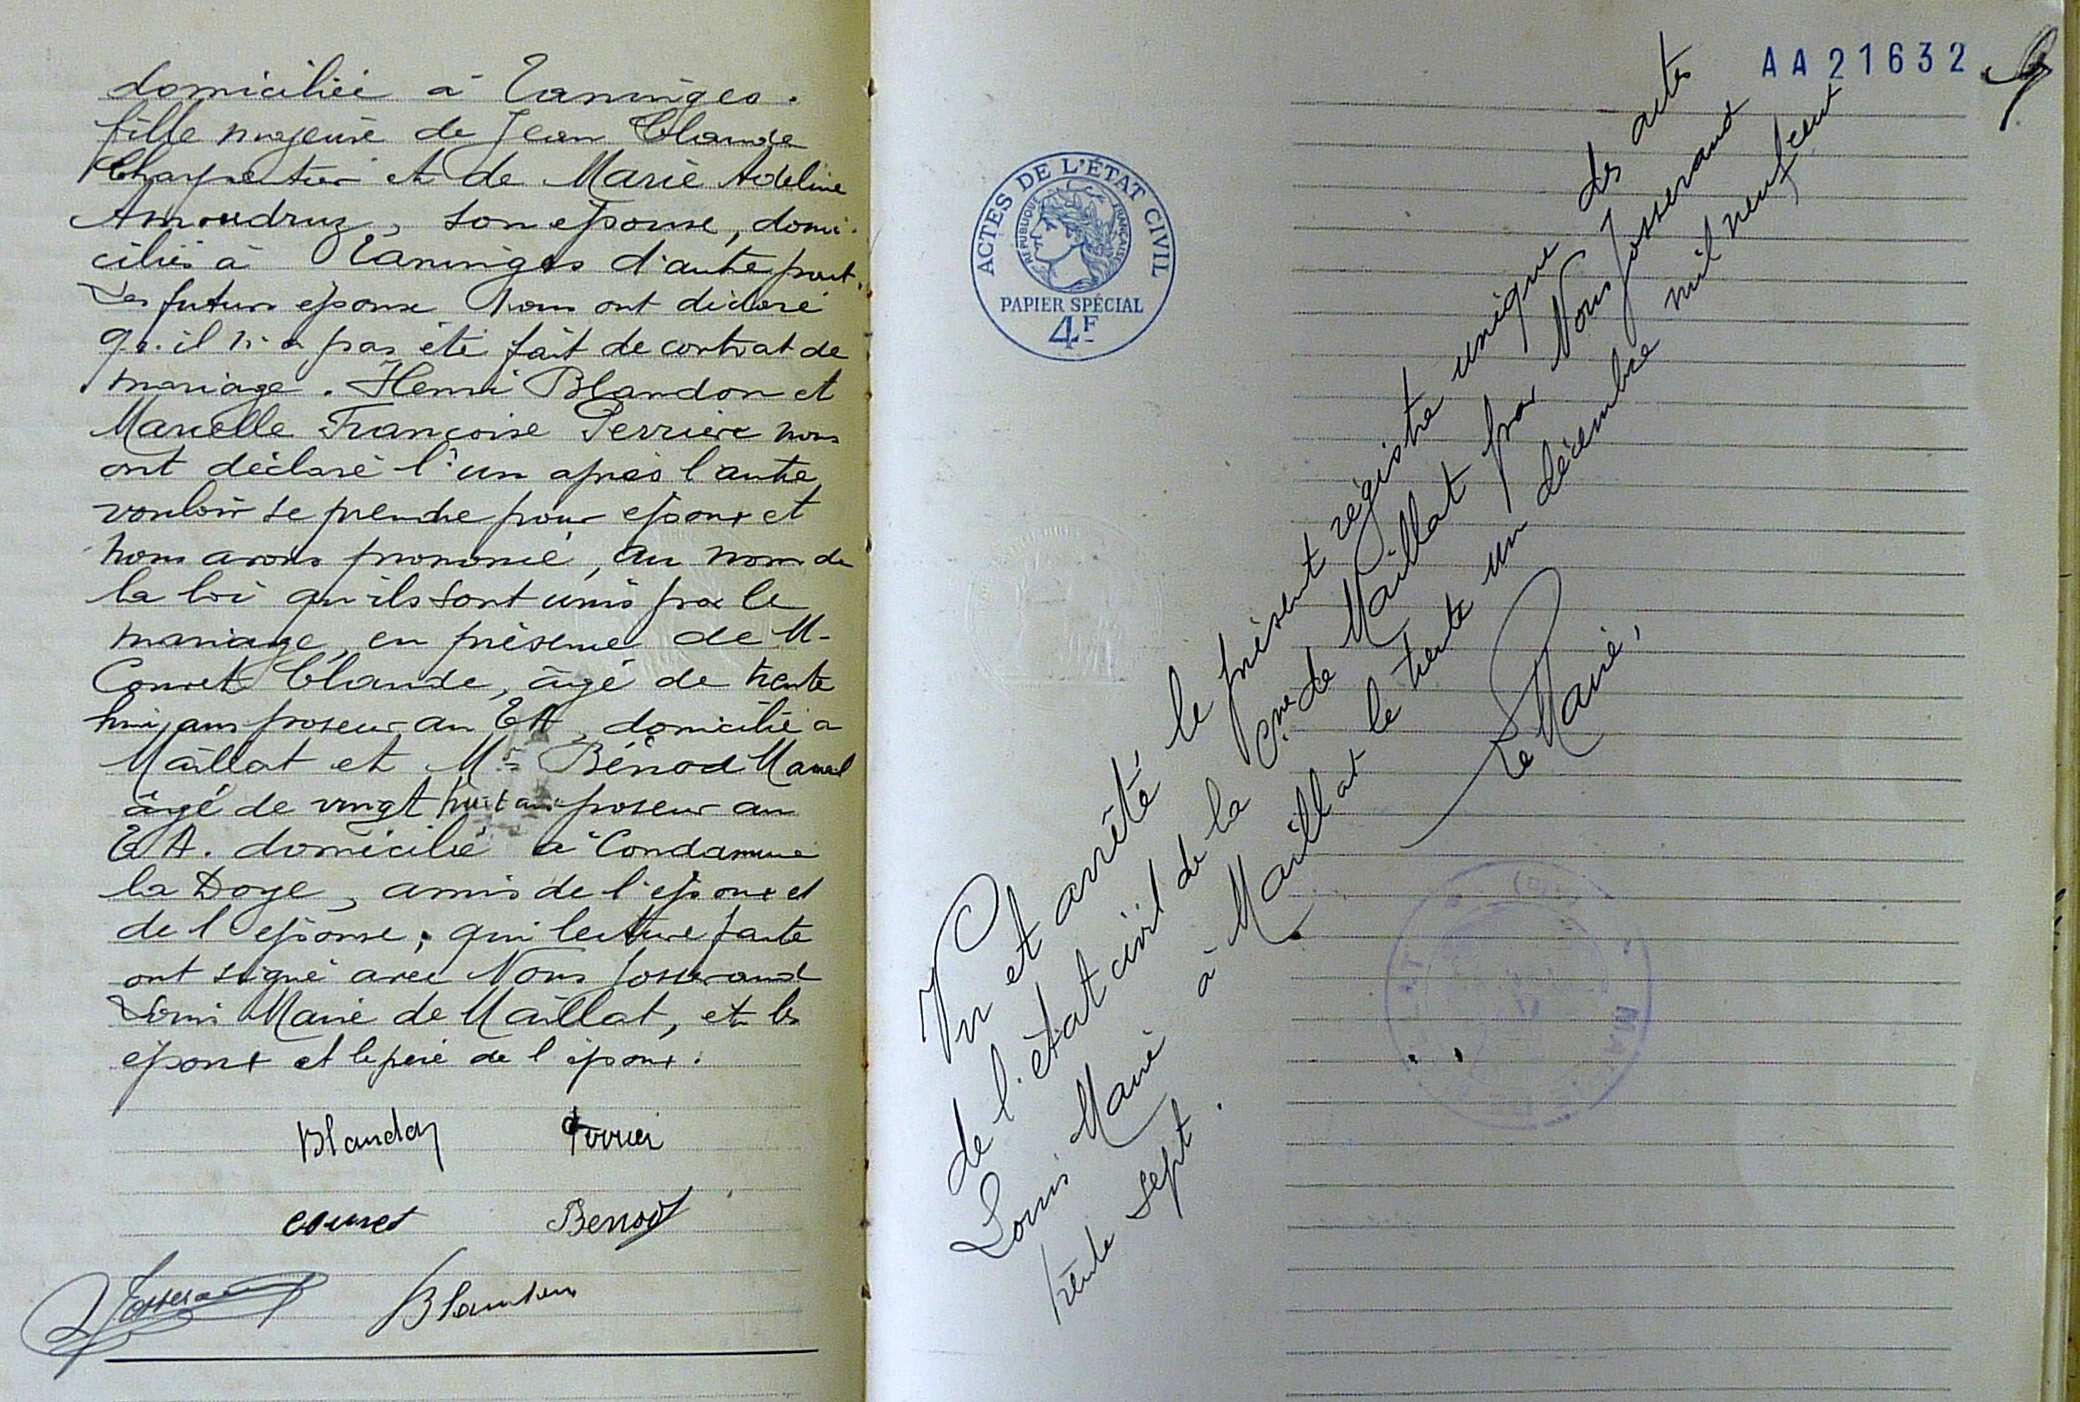 domiciliée à Taninges.
fille majeure de Jean Claude
Charpentier et de Marie Adeline
Amoudruz, son épouse, domi-
ciliés à Taninges d'autre part.
Les futurs époux nous ont déclaré
qu'il n'a pas été fait de contrat de
mariage. Henri Blandon et
Marcelle Françoise Perrière nous
ont déclaré l'un après l'autre
vouloir se prendre pour époux et
nous avons prononcé, au nom de
la loi qu'ils sont unis par le
mariage, en présence de M-
Convet Claude, âgé de trente
huit ans poseur au TA, domicilié à
Maillat et Mr Bénod Marcel
âgé de vingt huit ans poseur au
TA. domicilié à Condamine
la Doye, amis de l'époux et
de l'épouse; qui lecture faite
ont signé avec Nous Josserand
Louis Maire de Maillat, et les
époux et le père de l'époux.
Blandon Perrier
Convet Benod
Josserand Blandon
AA21632
ACTES DE L'ÉTAT CIVIL
RÉPUBLIQUE FRANÇAISE
PAPIER SPÉCIAL
4F
Vu et arrêté, le présent régistre unique des actes
de l'état civil de la Cne de Maillat par Nous Josserand
Louis Maire à Maillat le trente un décembre mil neuf cent
trente sept.
Le Maire,
MAIRIE DE MAILLAT